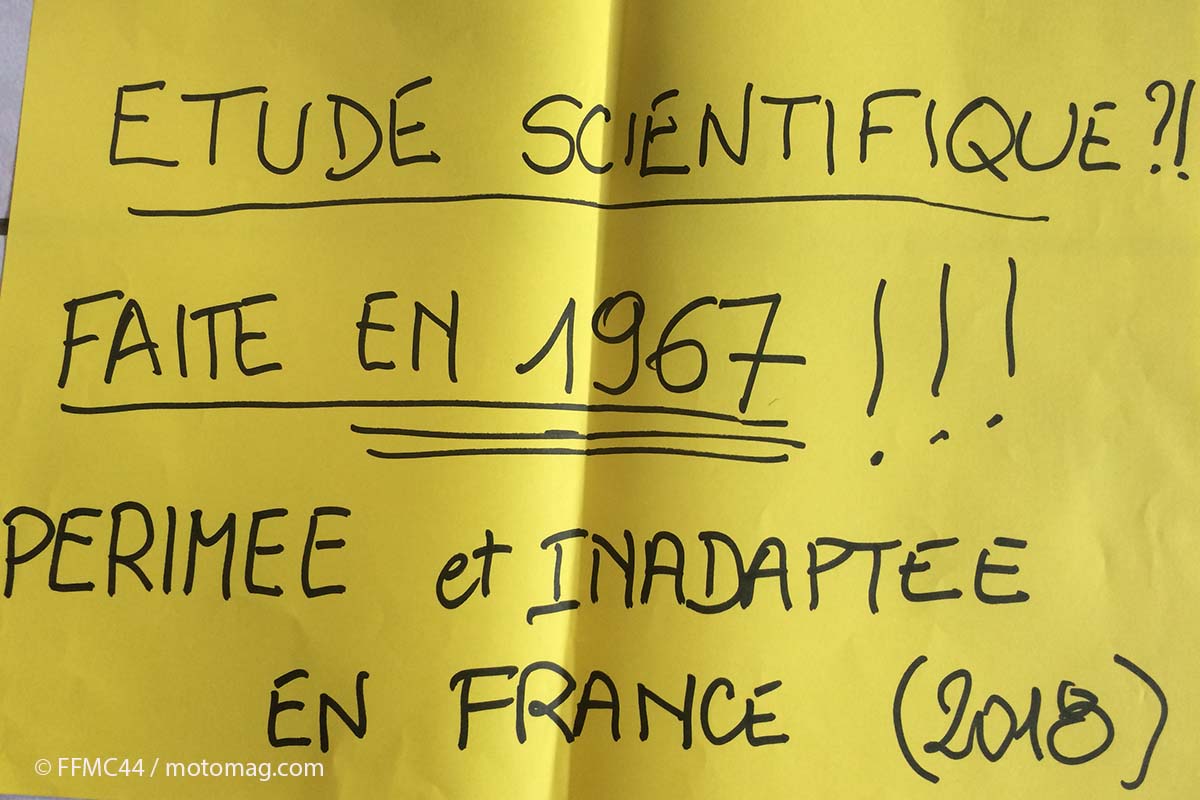 ETUDE SCIENTIFIQUE?!
FAITE EN 1967 !!!
PERIMEE et INADAPTEE
EN FRANCE (2018)
© FFMC44 / motomag.com